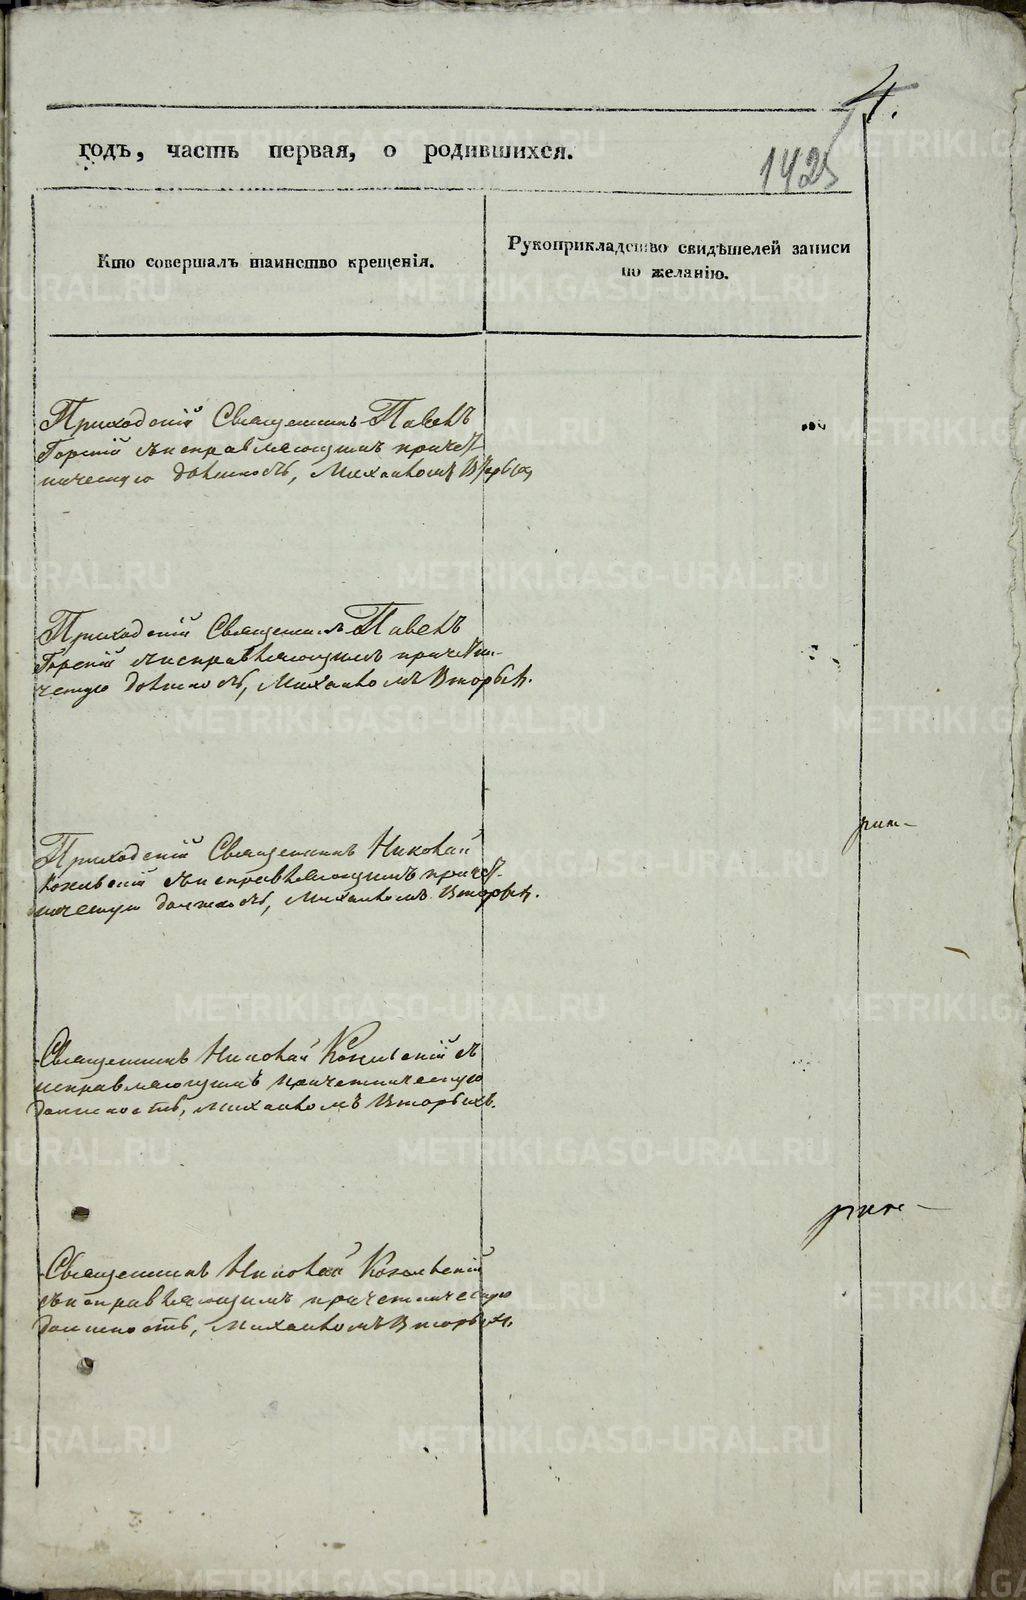 4.
годъ, часть первая, о родившихся.
1425
Кто совершалъ таинство крещенія.
Рукоприкладство свидѣтелей записи
по желанію.
Приходскій Священникъ Павелъ
Горскій съ исправляющимъ причет-
ническую должность, Михаиломъ Вторыхъ
Приходскій Священникъ Павелъ
Горскій съ исправляющимъ причетни-
ческую должность, Михаиломъ Вторыхъ.
Приходскій Священникъ Николай
съ исправляющимъ причет-
ническую должность, Михаиломъ Вторыхъ.
Священникъ Николай съ
исправляющимъ причетническую
должность, Михаиломъ Вторыхъ.
Священникъ Николай
съ исправляющимъ причетническую
должность, Михаиломъ Вторыхъ.
METRIKI.GASO-URAL.RU